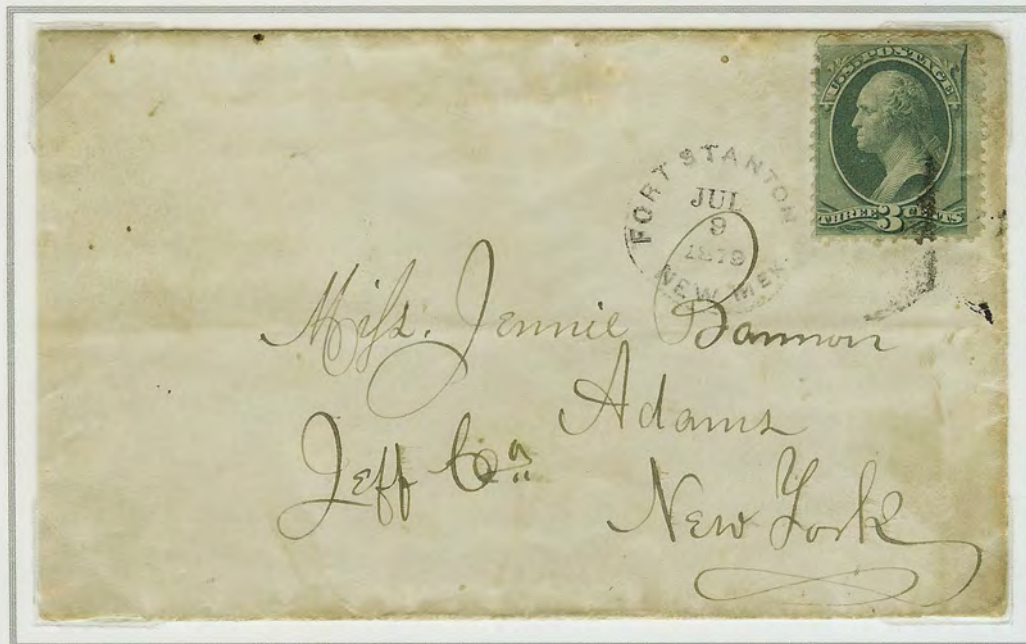 U.S. POSTAGE
THREE 3 CENTS
FORT STANTON
JUL
9
1879
NEW MEX.
Miſs. Jennie Bannon
Adams
Jeff Co.
New York